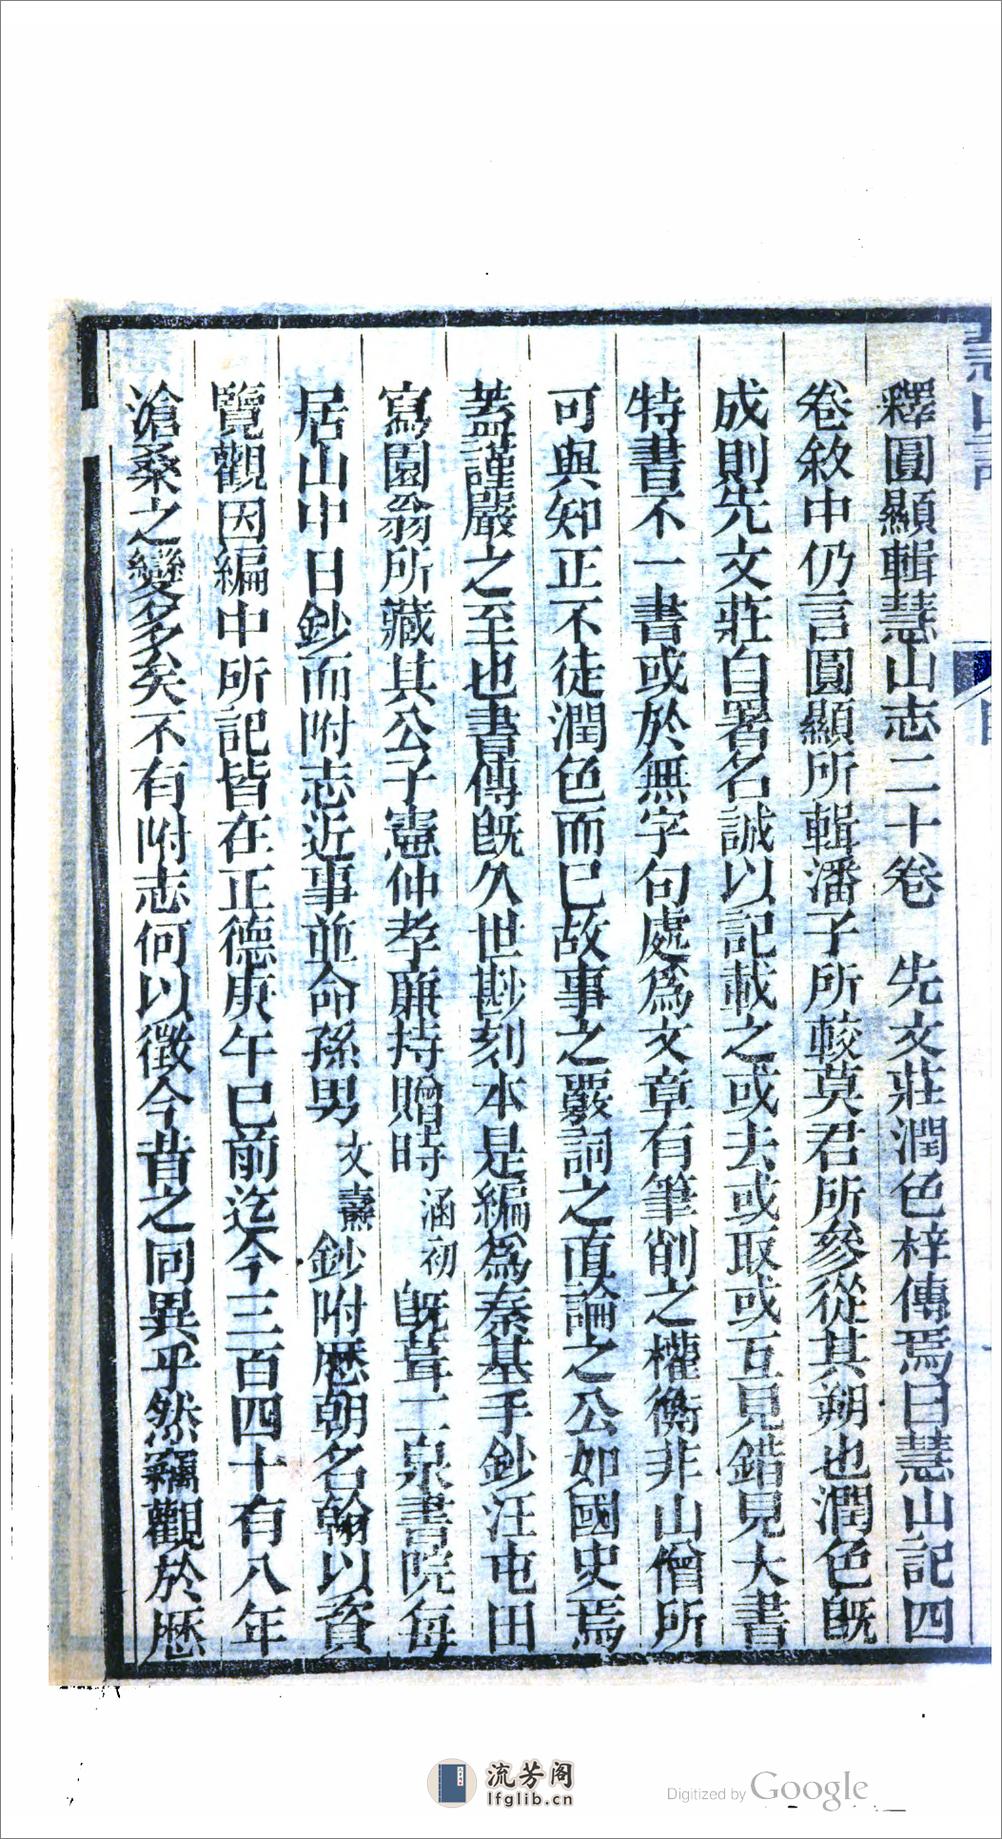 釋圓顯輯慧山志二十卷　先文莊潤色梓傳焉曰慧山記四
卷敘中仍言圓顯所輯潘子所較莫君所參從其朔也潤色旣
成則先文莊自署名誠以記載之或去或取或互見錯見大書
特書不一書或於無字句處爲文章有筆削之權衡非山僧所
可與知正不徒潤色而已故事之覈詞之直論之公如國史焉
蓋謹嚴之至也書傳旣久世尠刻本是編爲秦基手鈔汪屯田
寫園翁所藏其公子憲仲孝廉持贈時涵初旣葺二泉書院每
居山中日鈔而附志近事並命孫男文燾鈔附歷朝名翰以資
覽觀因編中所記皆在正德庚午已前迄今三百四十有八年
滄桑之變多矣不有附志何以徵今昔之同異乎然竊觀於歷
流芳阁
lfglib.cn
Digitized by Google